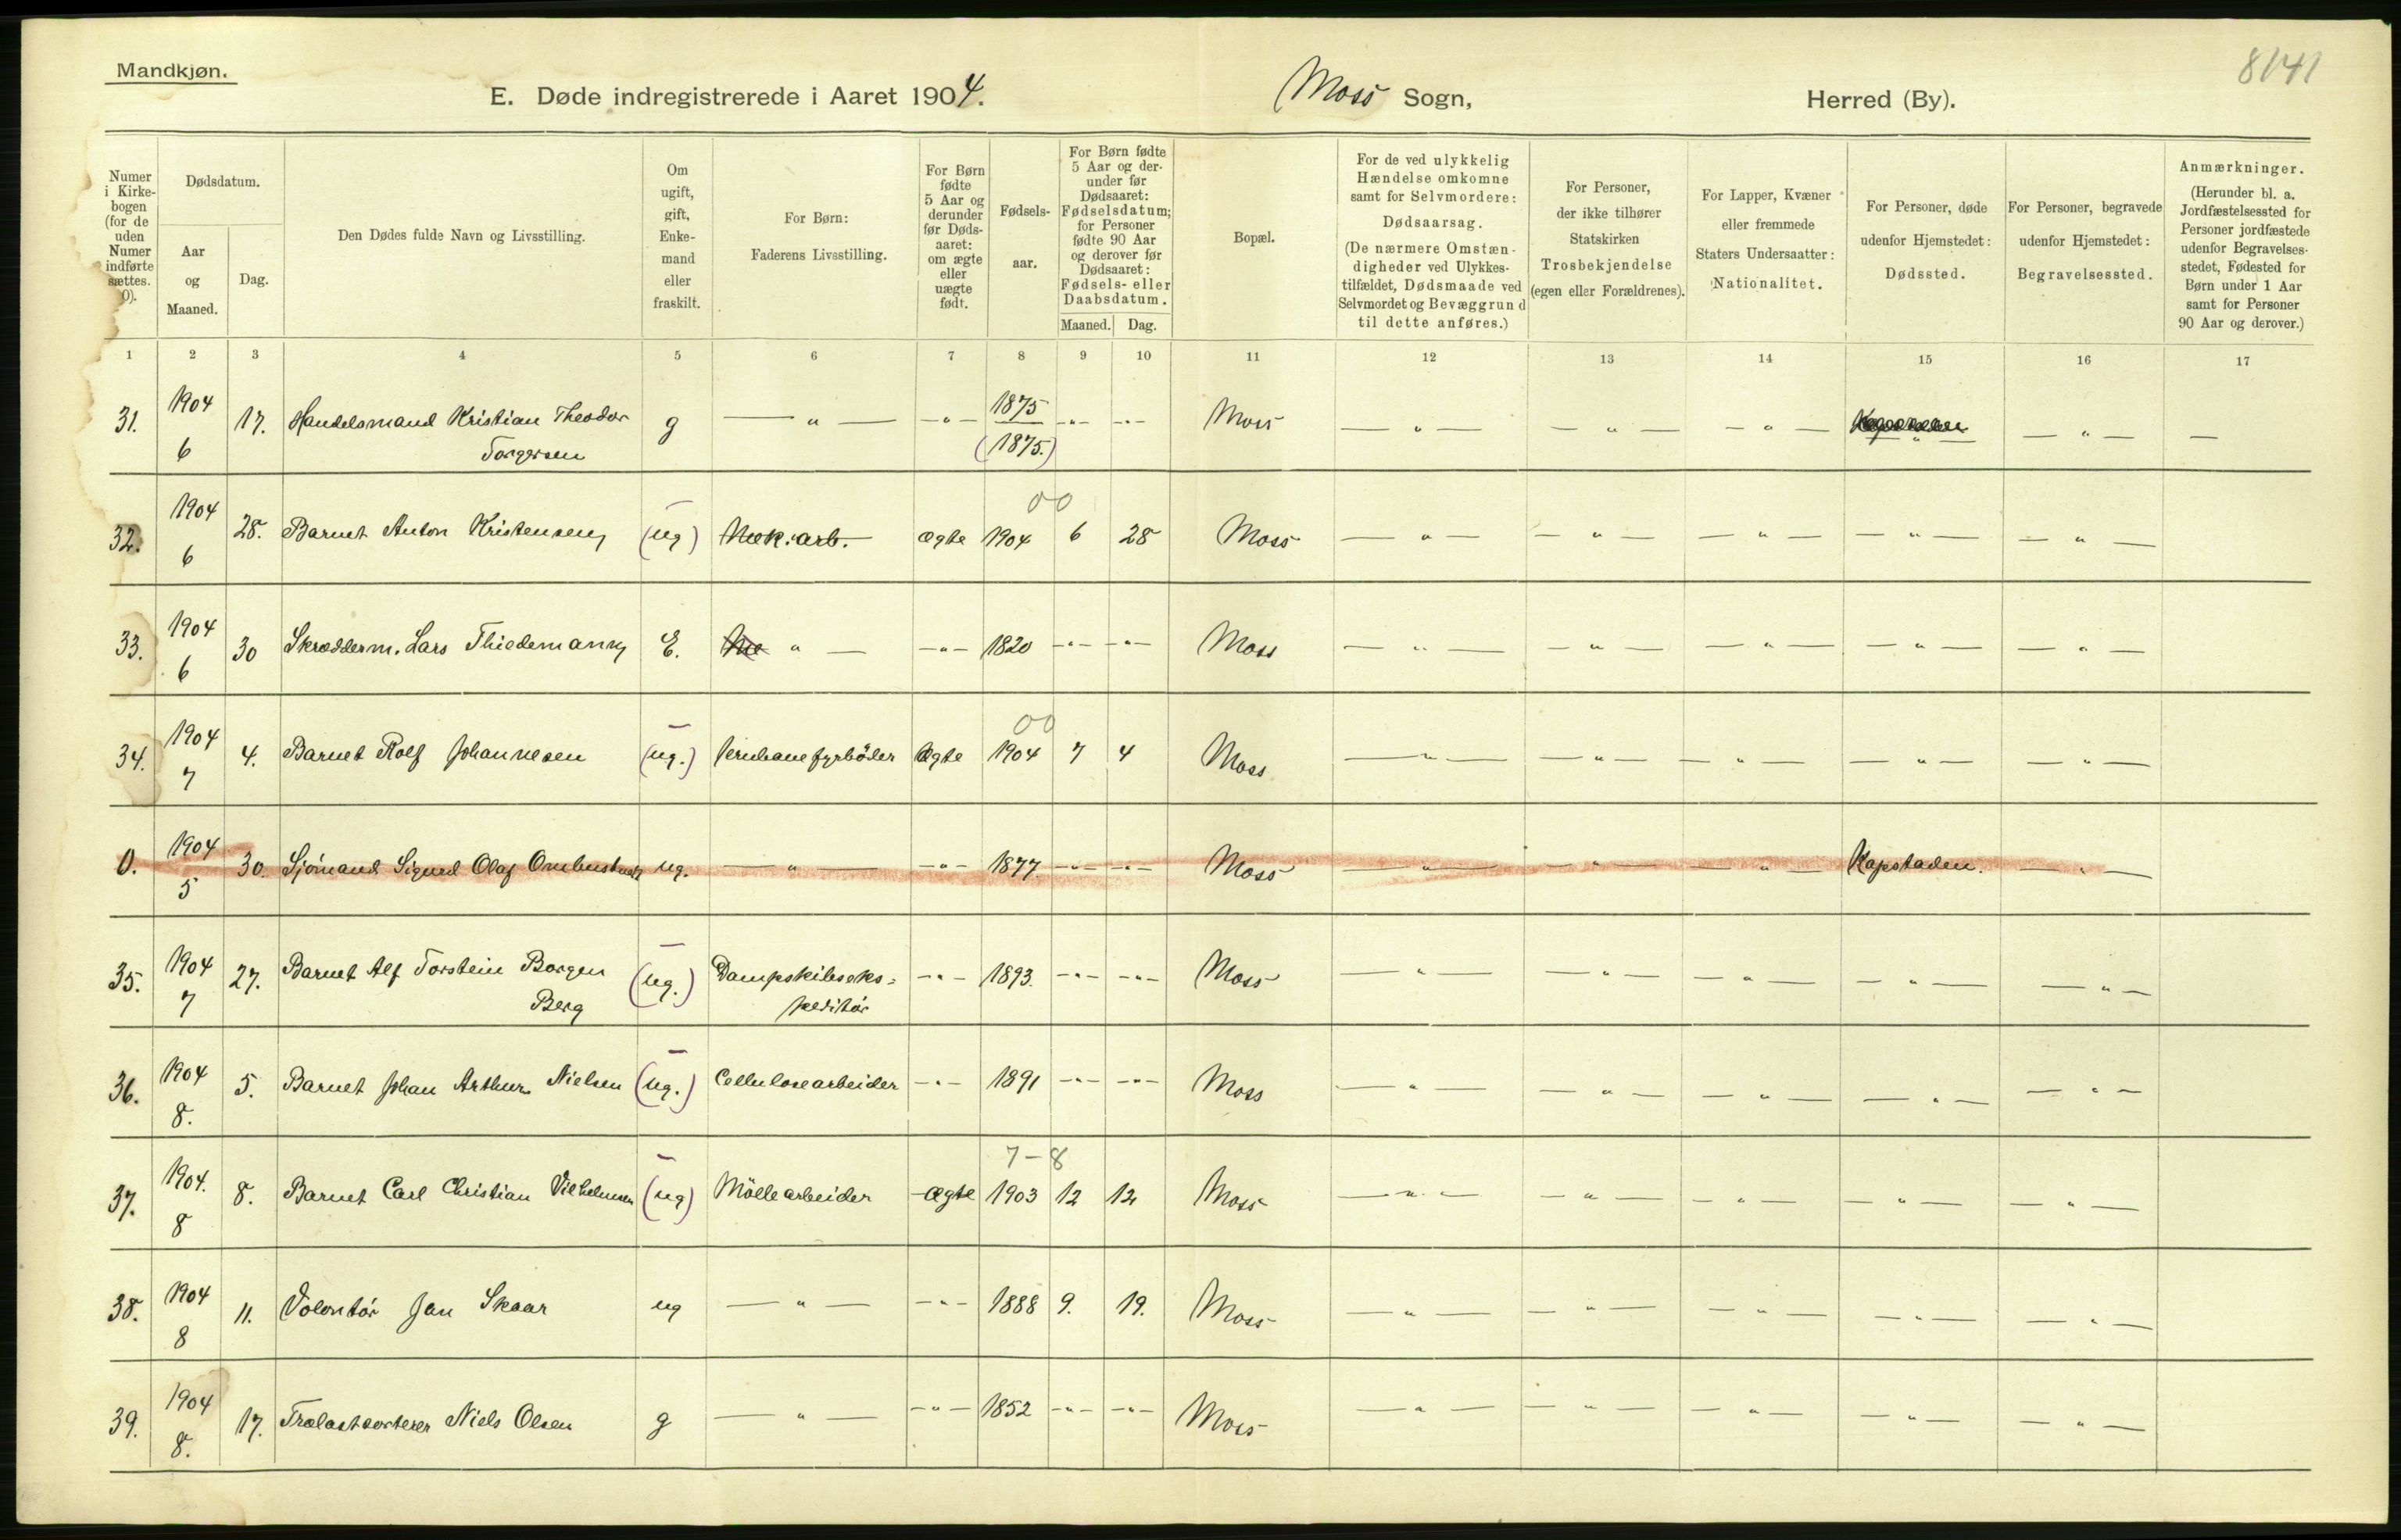 Mandkjøn.
8141
E. Døde indregistrerede i Aaret 1904. Moss Sogn, Herred (By).
Numer i Kirkebogen (for de uden Numer indførte sættes. 0).
Dødsdatum.
Aar og Maaned.
Dag.
Den Dødes fulde Navn og Livsstilling.
Om ugift, gift, Enkemand eller fraskilt.
For Børn: Faderens Livsstilling.
For Børn fødte 5 Aar og derunder før Dødsaaret: om ægte eller uægte født.
Fødselsaar.
For Børn fødte 5 Aar og derunder før Dødsaaret: Fødselsdatum; for Personer fødte 90 Aar og derover før Dødsaaret: Fødsels- eller Daabsdatum.
Maaned. Dag.
Bopæl.
For de ved ulykkelig Hændelse omkomne samt for Selvmordere: Dødsaarsag. (De nærmere Omstændigheder ved Ulykkestilfældet, Dødsmaade ved Selvmordet og Bevæggrund til dette anføres.)
For Personer, der ikke tilhører Statskirken Trosbekjendelse (egen eller Forældrenes).
For Lapper, Kvæner eller fremmede Staters Undersaatter: Nationalitet.
For Personer, døde udenfor Hjemstedet: Dødssted.
For Personer, begravede udenfor Hjemstedet: Begravelsessted.
Anmærkninger. (Herunder bl. a. Jordfæstelsessted for Personer jordfæstede udenfor Begravelsesstedet, Fødested for Børn under 1 Aar samt for Personer 90 Aar og derover.)
1 2 3 4 5 6 7 8 9 10 11 12 13 14 15 16 17
31. 1904 6 17. Handelsmand Kristian Theodor Torgersen g — " — — " — 1875 (1875.) — " — — " — Moss — " — — " — — " — — " — — " — —
00
32. 1904 6 28. Barnet Anton Kristensen (ug) Mek. arb. ægte 1904 6 28 Moss — " — — " — — " — — " — — " —
33. 1904 6 30 Skrædderm. Lars Thiedemann E. Me " — — " — 1820 — " — — " — Moss — " — — " — — " — — " — — " —
00
34. 1904 7 4. Barnet Rolf Johannesen (ug.) Jernbanefyrbøder ægte 1904 7 4 Moss — " — — " — — " — — " — — " —
0. 1904 5 30. Sjömand Sigurd Olaf ug. — " — — " — 1877 — " — — " — Moss — " — — " — — " — Kapstaden. — " —
35. 1904 7 27. Barnet Alf Torstein Borgen Berg (ug.) Dampskibsekspeditør — " — 1893. — " — — " — Moss — " — — " — — " — — " — — " —
36. 1904 8. 5. Barnet Johan Arthur Nielsen (ug.) Cellulosearbeider — " — 1891 — " — — " — Moss — " — — " — — " — — " — — " —
7-8
37. 1904. 8 8. Barnet Carl Christian Vilhelmsen (ug) Möllearbeider ægte 1903 12 12 Moss — " — — " — — " — — " — — " —
38. 1904 8 11. Volontør Jan Skaar ug — " — — " — 1888 9. 19. Moss — " — — " — — " — — " — — " —
39. 1904 8. 17. Trælastsorterer Niels Olsen g — " — — " — 1852 — " — — " — Moss — " — — " — — " — — " — — " —